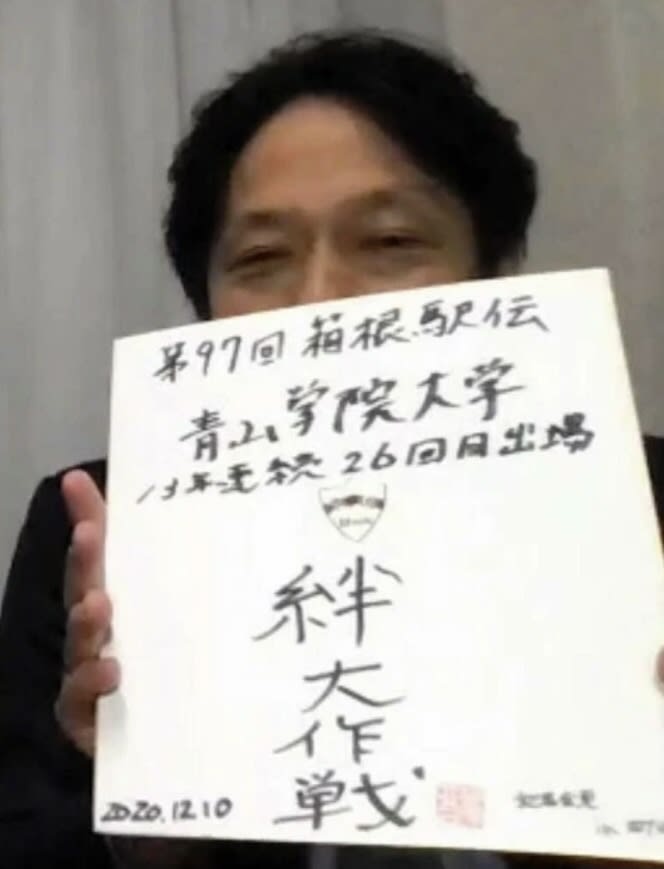 第97回 箱根駅伝
青山学院大学
13年連続 26回目出場
絆
大
作
戦
2020.12.10
記者会見
in